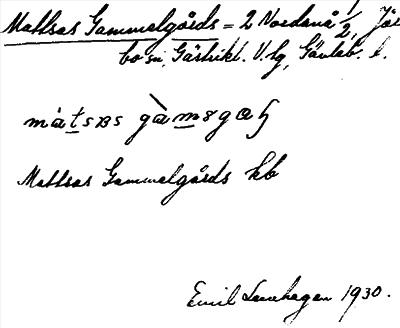 Mattsas Gammelgårds = 2 Nordanå 1/2, Jär
bo sn, Gästrikl. V. hg, Gävleb. l.
màtsas gàmǝgaɧ
Mattsas Gammelgårds kb
Emil Lenhagen 1930.